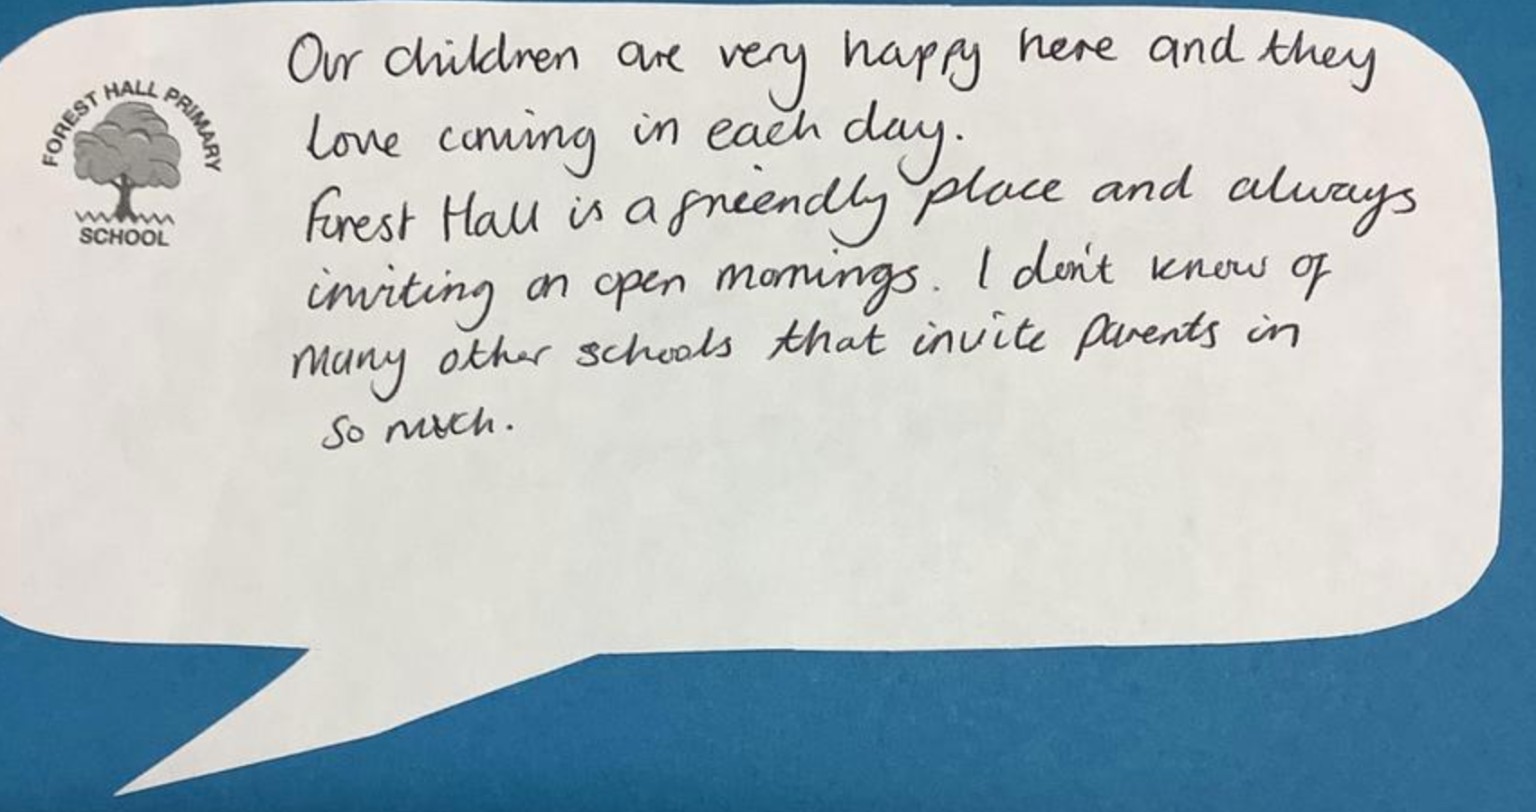 FOREST HALL PRIMARY
SCHOOL
Our children are very happy here and they
love coming in each day.
Forest Hall is a freendly place and always
inviting on open mornings. I don't know of
many other schools that invite parents in
so much.